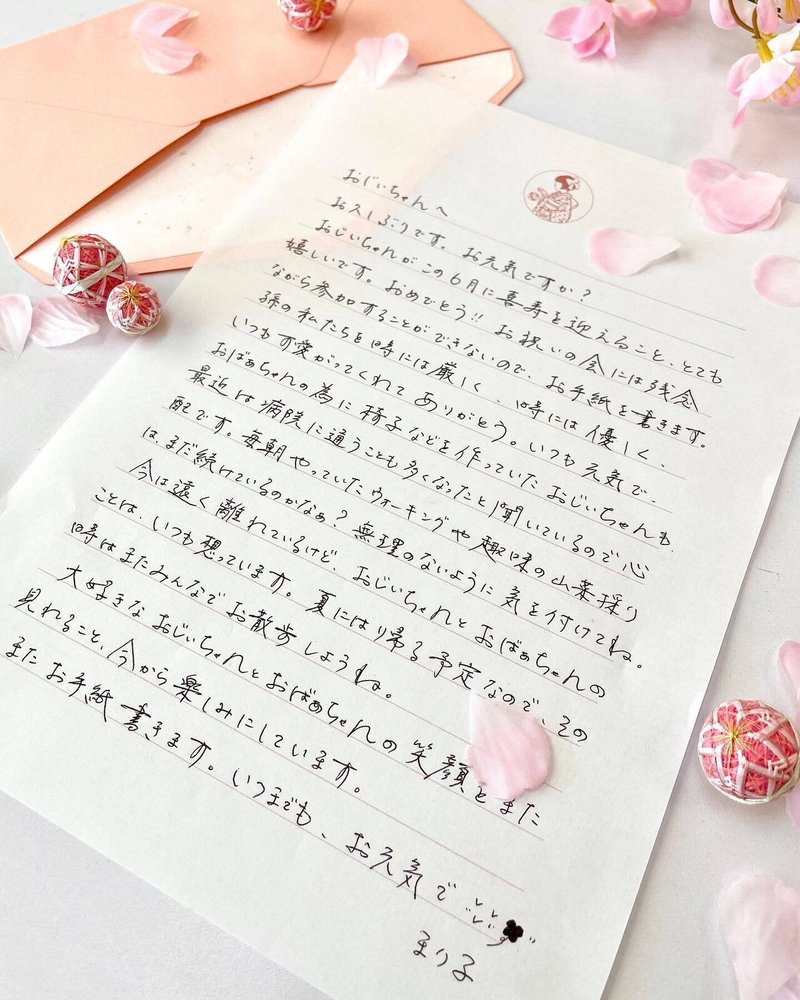 おじいちゃんへ
お久しぶりです。お元気ですか？
おじいちゃんがこの6月に喜寿を迎えること、とても
嬉しいです。おめでとう!! お祝いの会には残念
ながら参加することができないので、お手紙を書きます。
孫の私たちを時には厳しく、時には優しく、
いつも可愛がってくれてありがとう。いつも元気で
おばあちゃんの為に椅子などを作っていたおじいちゃんも、
最近は病院に通うことも多くなったと聞いているので心
配です。毎朝やっていたウォーキングや趣味の山菜採り
は、まだ続けているのかなぁ？無理のないように気を付けてね。
今は遠く離れているけど、おじいちゃんとおばあちゃんの
ことは、いつも想っています。夏には帰る予定なので、その
時はまたみんなでお散歩しようね。
大好きなおじいちゃんとおばあちゃんの笑顔をまた
見れること、今から楽しみにしています。
またお手紙書きます。いつまでも、お元気で
まり子